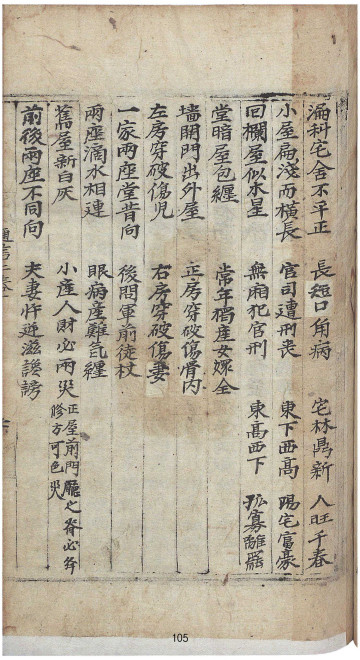 漏料宅舍不平正 長短口角病 宅林昌新 人旺千春
小屋扁淺而橫長 官司遭刑喪 東下西高 陽宅富豪
回欄屋似水星 無廂犯官刑 東高西下 孤寡離
堂暗屋包纏 常年獨産女嫁全
墻開門出外屋 正房穿破傷骨肉
左房穿破傷兒 右房穿破傷妻
一家兩座堂背向 後閗軍前徒杖
兩座滴水相連 眼病産難乱纏
舊屋新白灰 小産人財必兩災 正屋前門廳之脊必年 修方可色災
前後兩座不同向 夫妻忤逆滋談謗
105